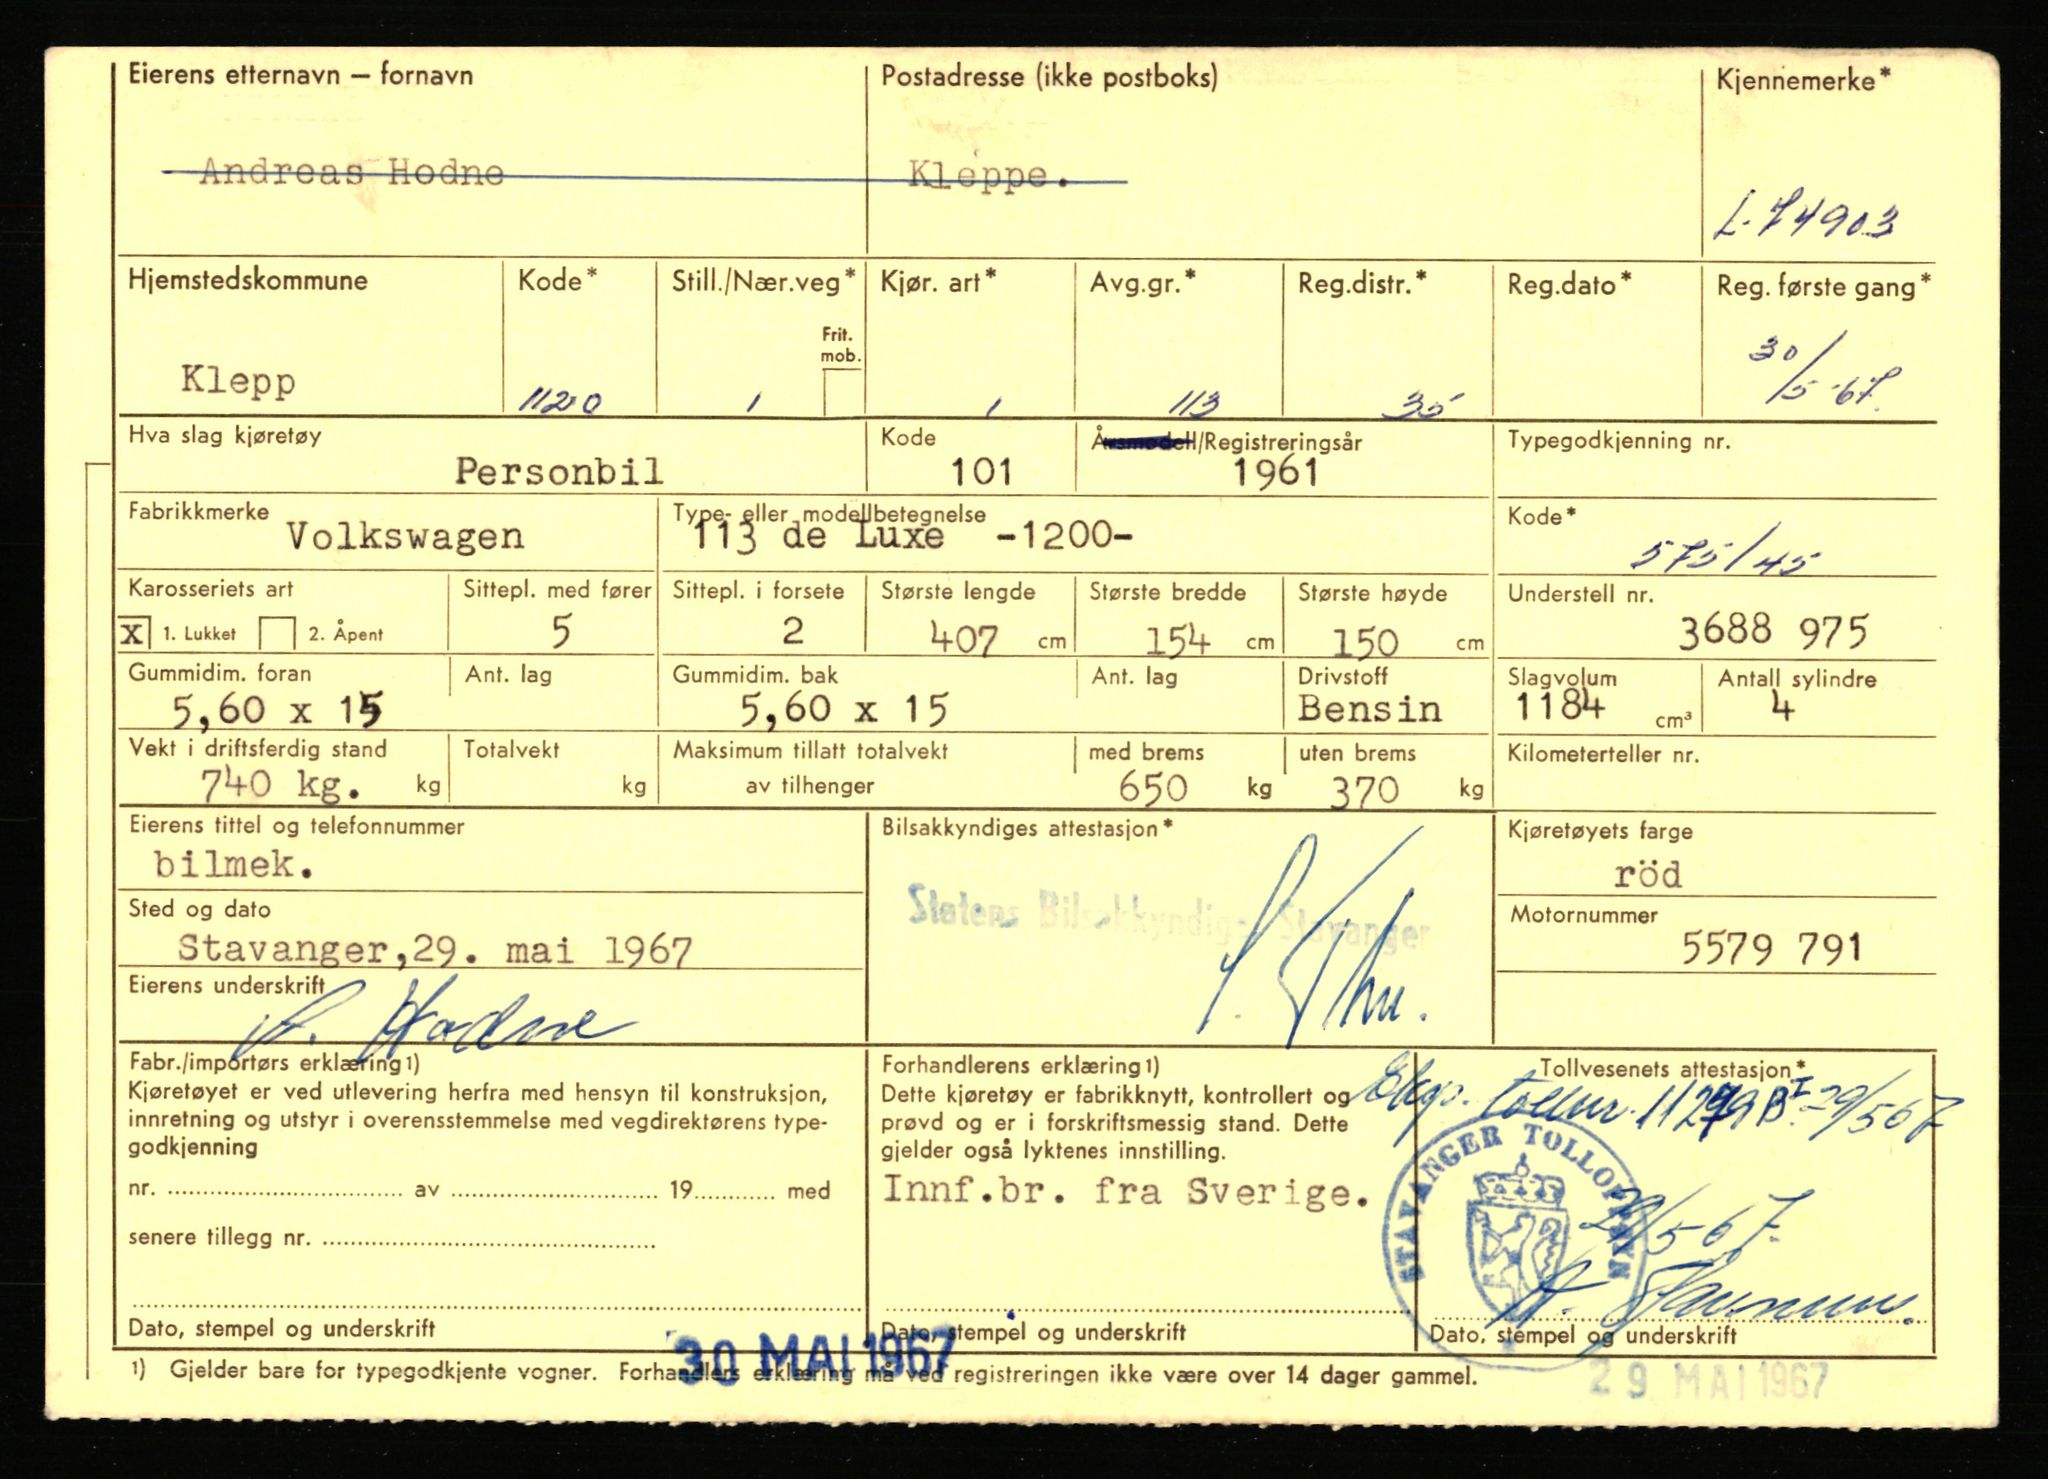 Eierens etternavn — fornavn Postadresse (ikke postboks) Kjennemerke*
Andreas Hodne Kleppe.
L-74903
Hjemstedskommune Kode* Still./Nær.veg* Kjør. art* Avg.gr.* Reg.distr.* Reg.dato* Reg. første gang*
Frit. mob.
Klepp 1120 1 1 113 35 30/5-67.
Hva slag kjøretøy Kode Årsmodell/Registreringsår Typegodkjenning nr.
Personbil 101 1961
Fabrikkmerke Type- eller modellbetegnelse Kode*
Volkswagen 113 de Luxe -1200- 575/45
Karosseriets art Sittepl. med fører Sittepl. i forsete Største lengde Største bredde Største høyde Understell nr.
X 1. Lukket 2. Åpent 5 2 407 cm 154 cm 150 cm 3688 975
Gummidim. foran Ant. lag Gummidim. bak Ant. lag Drivstoff Slagvolum Antall sylindre
5,60 x 15 5,60 x 15 Bensin 1184 cm³ 4
Vekt i driftsferdig stand Totalvekt Maksimum tillatt totalvekt med brems uten brems Kilometerteller nr.
740 kg. kg kg av tilhenger 650 kg 370 kg
Eierens tittel og telefonnummer Bilsakkyndiges attestasjon* Kjøretøyets farge
bilmek. röd
Sted og dato Statens Bilsakkyndige, Stavanger Motornummer
Stavanger, 29. mai 1967 5579 791
Eierens underskrift
A. Hodne
Fabr./importørs erklæring 1) Forhandlerens erklæring 1) Tollvesenets attestasjon*
Kjøretøyet er ved utlevering herfra med hensyn til konstruksjon,
innretning og utstyr i overensstemmelse med vegdirektørens type-
godkjenning
nr. ........ av ........ 19........ med
senere tillegg nr. ........
Dato, stempel og underskrift
Dette kjøretøy er fabrikknytt, kontrollert og
prøvd og er i forskriftsmessig stand. Dette
gjelder også lyktenes innstilling.
Innf.br. fra Sverige.
Dato, stempel og underskrift
29/567
STAVANGER TOLLOPPSYN
29/567.
Dato, stempel og underskrift
30 MAI 1967
1) Gjelder bare for typegodkjente vogner. Forhandlers erklæring må ved registreringen ikke være over 14 dager gammel.
29 MAI 1967